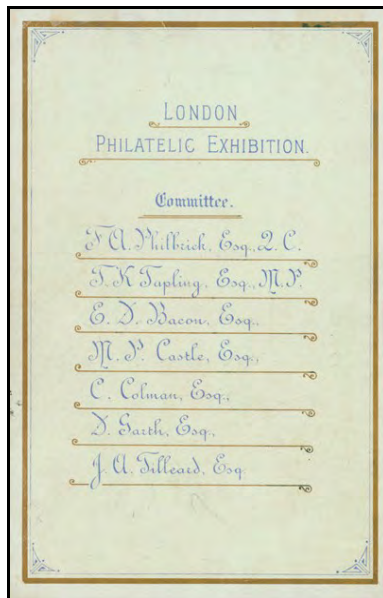 LONDON
PHILATELIC EXHIBITION.
Committee.
F. A. Philbrick, Esq., Q. C.
T. K. Tapling, Esq., M. P.
E. D. Bacon, Esq.,
M. P. Castle, Esq.,
C. Colman, Esq.,
D. Garth, Esq.,
J. A. Tilleard, Esq.